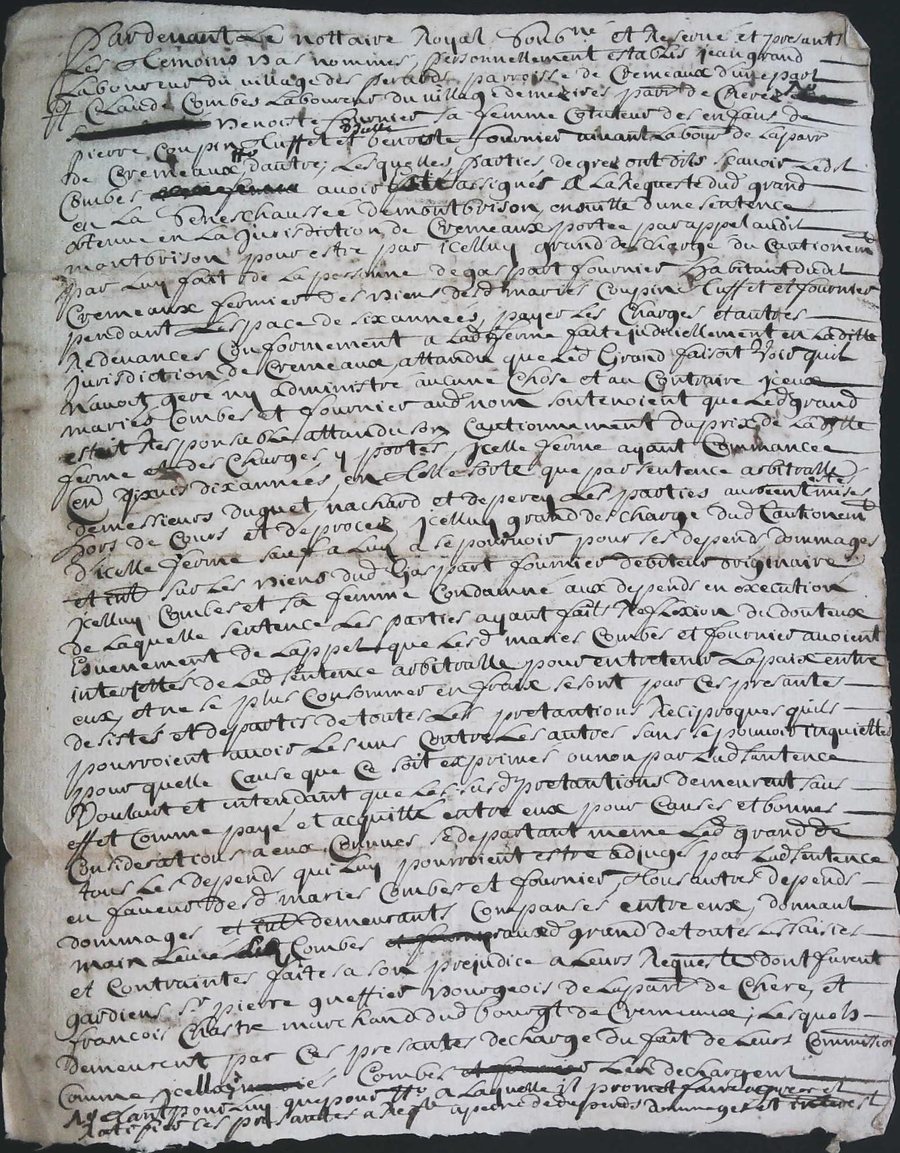 Pardevant Le nottaire Royal Soubné et Reservé et presants
Les temoins bas nommes, personnellement establis jean grand
Laboureur du village des perards parroisse de Cremeaux d'une part
Et Claude Combes Laboureur du village de mezires parr de Cherez
Benoiste fournier sa femme Curateur des enfans de
pierre Coupin Cuffet et benoite fournier vivant Labour de la parr
de Cremeaux d'autre, Lesquelles parties de gre ont dits scavoir Led
Combes avoir este assignés A La Requeste dud grand
en La Seneschaussée de montbrison, en suitte d'une sentence
obtenue en La Jurisdiction de Cremeaux portée par appel audit
montbrison pour estre par icelluy grand decharge du Cautionemt
par Luy fait de La personne de gaspart fournier habitant dudit
Cremeaux fermier des biens desd mariés Coupin Cuffet et fournier
pendant Lespace de six années, payer Les Charges et autres
Redevances Conformement a Lad ferme faite judiciellement en Laditte
Jurisdiction de Cremeaux, attandu que Led Grand faisoit Voir quil
n'avoit gere ny administre aucune Chose et au Contraire iceux
mariés Combes et fournier aud nom soutenoient que Led grand
estoit Responsable attandu son Cautionnement du prix de Laditte
ferme et des Charges y portés, icelle ferme ayant Commancee
en dixannées, en telle sorte que par sentence arbitralle
de messieurs duguet, nachard et deperey Les parties auroient estes mises
hors de Cours et de proces icelluy grand decharge dud Cautionemt
d'icelle ferme sauf a Luy a se pourvoir pour ses depends dommages
et int sur Les biens dud Gaspart fournier debiteur originaire
icelluy Combes et sa femme Condamné aux depends en execution
de Laquelle sentence Les parties ayant fait Reflexion du douteux
Evenement de Lappel que Lesd mariés Combes et fournier avoient
interjettes de Lad sentence arbitralle pour entretenir La paix entre
eux, et ne se plus Consommer en fraix se sont par Ces presantes
desistes et departis de toutes Les pretantions Reciproques quils
pourroient avoir Les uns Contre Les autres sans se pouvoir inquietter
pour quelle Cause que Ce soit exprimés ou non par Lad sentence
Voulant et intendant que Les susd pretantions demeurent sans
effet Comme payé et acquitté entre eux pour Causes et bonnes
Considerations a eux Connues, se departant meme Led grand de
tous Les depends qui Luy pourroient estre adjuges par Lad sentence
en faveur desd mariés Combes et fournier, Tous autres depends
dommages et int demeurants Compansés entre eux, donnant
main Levee Led Combes aud grand de toutes Les saisies
et Contraintes faites a son prejudice a Leurs Requeste dont furent
gardiens Sr pierre gueffier bourgeois de La parr de Chere, et
françois Chastre marchand dud bourgt de Cremeaux, Lesquels
demeurent par Ces presantes decharge du fait de Leurs Commission
Comme icelluy Combes Les dechargent
tant pour Luy que pour a Laquelle il promet faire
Ratifier Ces presantes a peine de depends dommages et interest